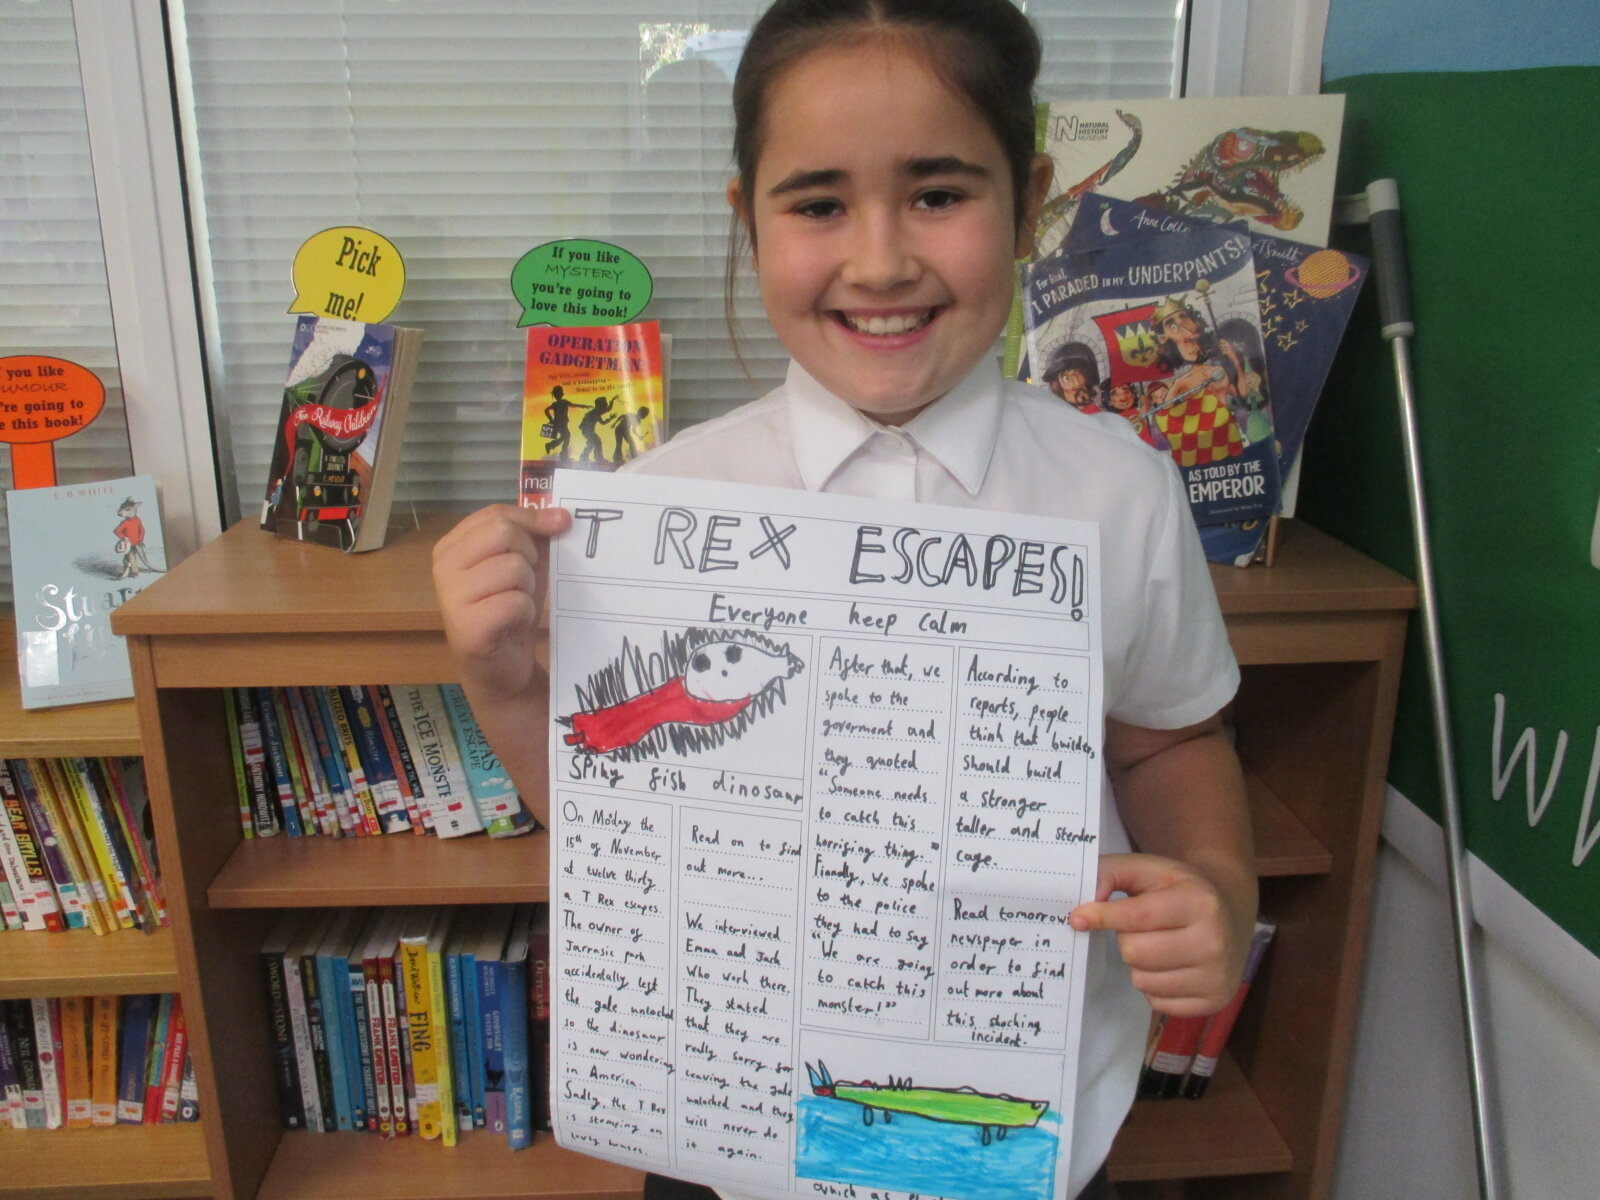 NATURAL
HISTORY
MUSEUM
Pick
me!
If you like
MYSTERY
you're going to
love this book!
you like
UMOUR
're going to
e this book!
The Railway Children
OPERATION
GADGETMAN
E. B. WHITE
Stuart
For Real,
I PARADED IN MY UNDERPANTS!
AS TOLD BY THE
EMPEROR
T REX ESCAPES!
Everyone keep calm
Spiky fish dinosaur
On Moday the
15th of November
at twelve thirty
a T Rex escapes.
The owner of
Jarrasic park
accidentally left
the gate unlocked
so the dinosaur
is now wondering
in America.
Sadly, the T Rex
is stomping on
lovly houses.
Read on to find
out more...
We interviewed
Emma and Jack
Who work there.
They stated
that they are
really sorry for
leaving the gate
unlocked and they
will never do
it again.
After that, we
spoke to the
goverment and
they quoted
"Someone needs
to catch this
horrifing thing."
Finally, we spoke
to the police
they had to say
"We are going
to catch this
monster!"
which as
According to
reports, people
think that builders
should build
a stronger
taller and sterder
cage.
Read tomorrows
newspaper in
order to find
out more about
this shocking
incident.
THE ICE MONSTER
GREAT ESCAPE
FING